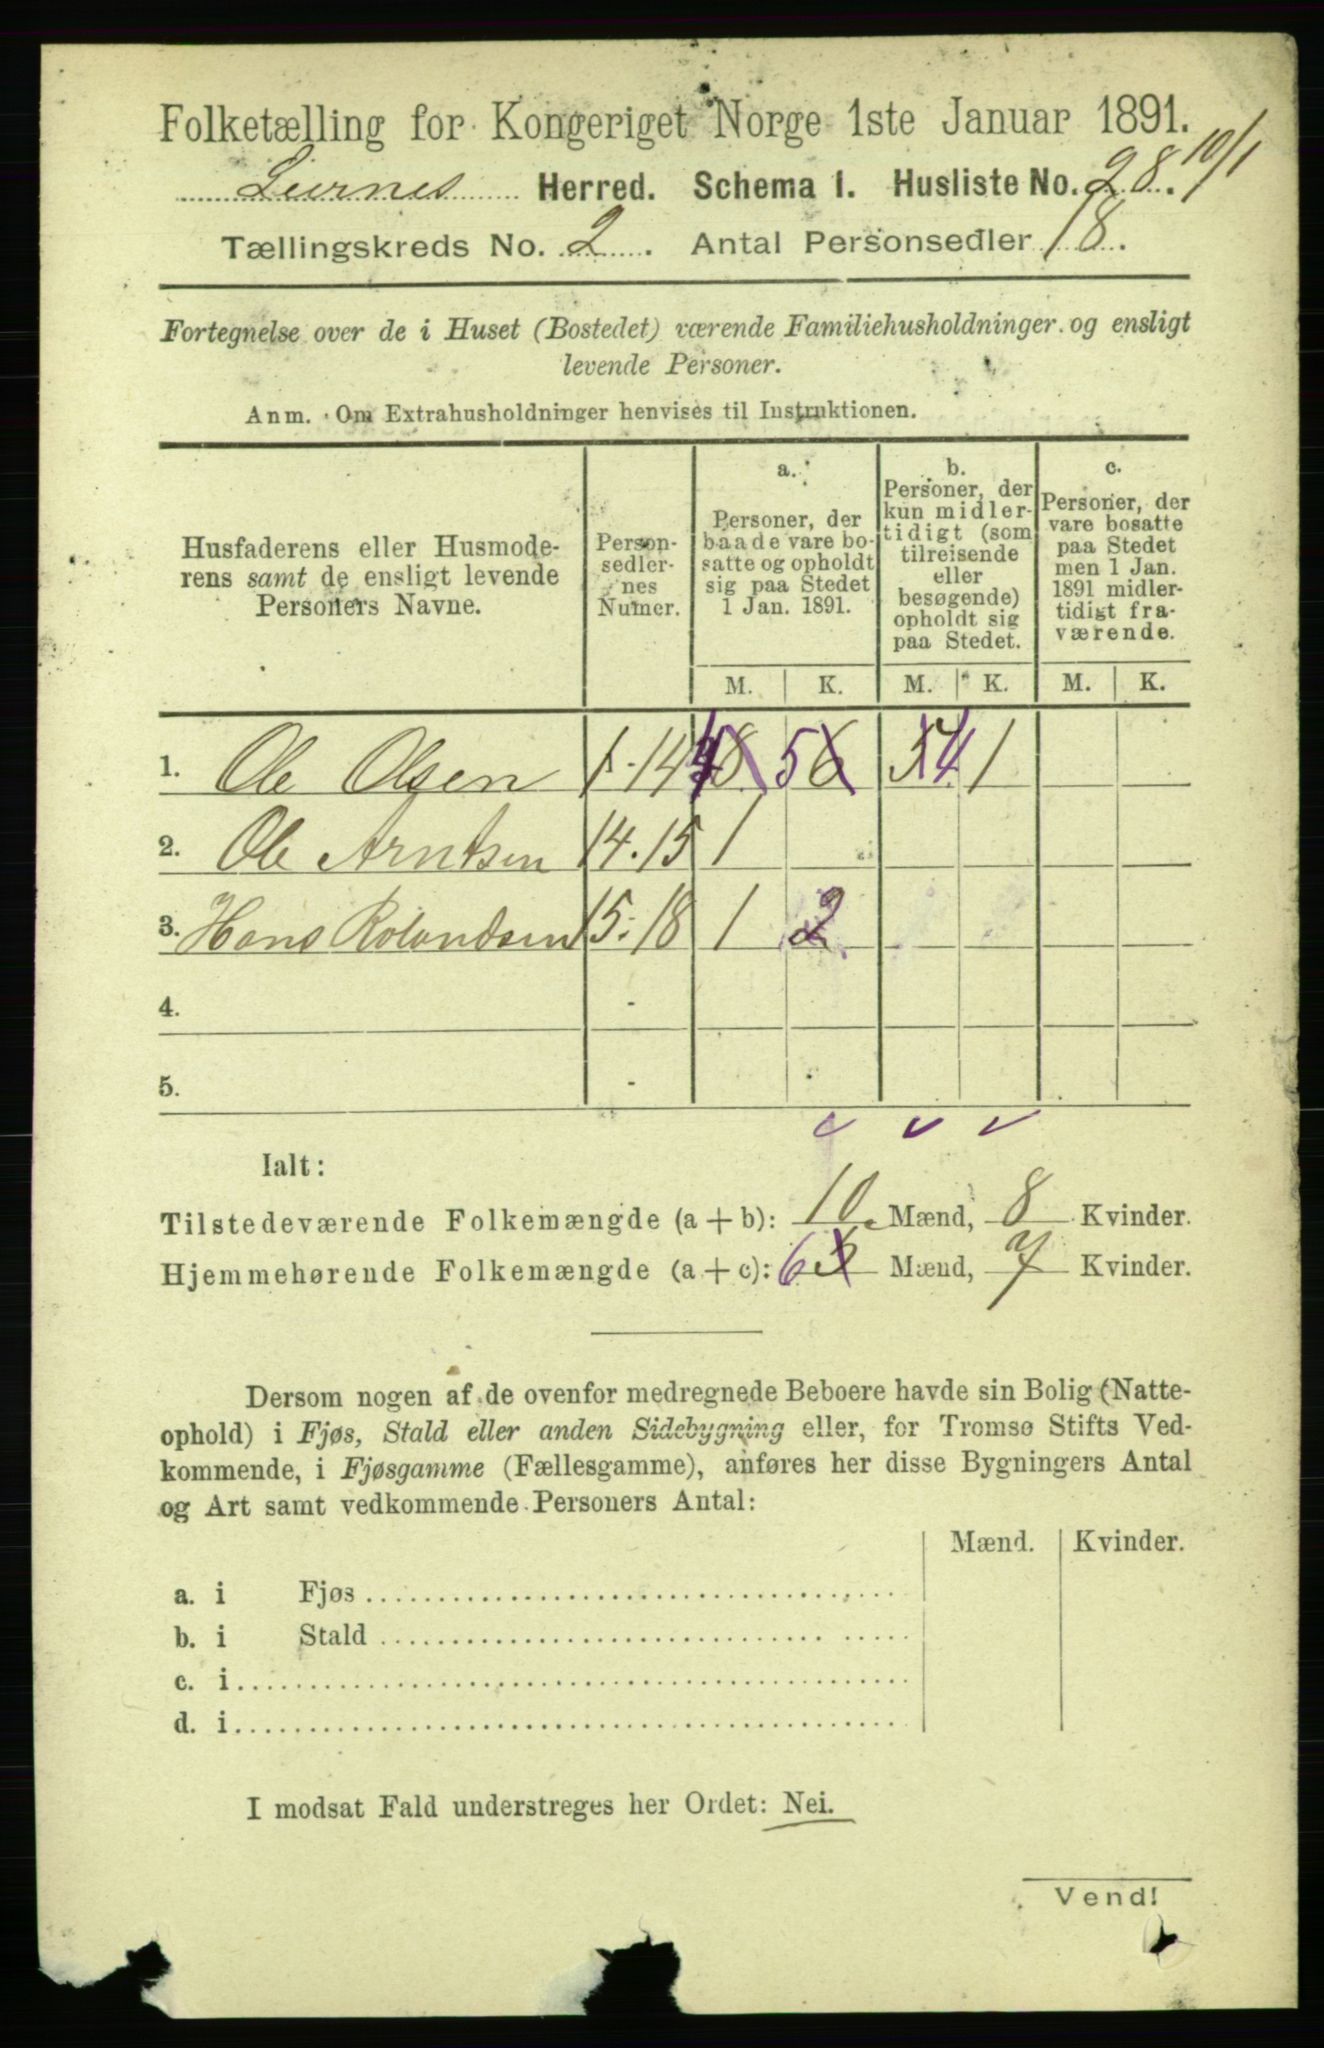 Folketælling for Kongeriget Norge 1ste Januar 1891.
10/1
Herred. Schema 1. Husliste No. 28.
Tællingskreds No. 2. Antal Personsedler 18.
Fortegnelse over de i Huset (Bostedet) værende Familiehusholdninger og ensligt
levende Personer.
Anm. Om Extrahusholdninger henvises til Instruktionen.
Husfaderens eller Husmode-
rens samt de ensligt levende
Personers Navne.
Person-
sedler-
nes
Numer.
a.
Personer, der
baade vare bo-
satte og opholdt
sig paa Stedet
1 Jan. 1891.
b.
Personer, der
kun midler-
tidigt (som
tilreisende
eller
besøgende)
opholdt sig
paa Stedet.
c.
Personer, der
vare bosatte
paa Stedet
men 1 Jan.
1891 midler-
tidigt fra-
værende.
M. K. M. K. M. K.
1. Ole Olsen 1-14 5 6 4 1
2. Ole Arntsen 14.15 1
3. Hans Rolandsen 15-18 1 2
4. -
5. -
Ialt:
Tilstedeværende Folkemængde (a + b): 10 Mænd, 8 Kvinder.
Hjemmehørende Folkemængde (a + c): 6 Mænd, 7 Kvinder.
Dersom nogen af de ovenfor medregnede Beboere havde sin Bolig (Natte-
ophold) i Fjøs, Stald eller anden Sidebygning eller, for Tromsø Stifts Ved-
kommende, i Fjøsgamme (Fællesgamme), anføres her disse Bygningers Antal
og Art samt vedkommende Personers Antal:
Mænd. Kvinder.
a. i Fjøs
b. i Stald
c. i
d. i
I modsat Fald understreges her Ordet: Nei.
Vend!